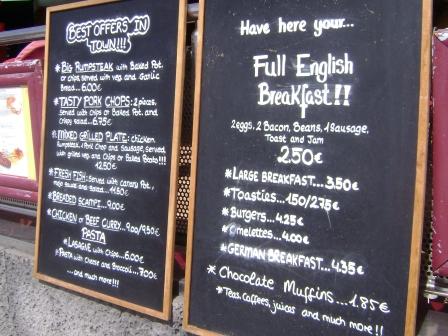 BEST OFFERS IN
TOWN!!!
*BIG RUMPSTEAK with Baked Pot.
or chips, served with veg and Garlic
Bread... 6.00€
*TASTY PORK CHOPS: 2 pieces,
served with Chips or Baked Pot. and
Crispy salad... 6.75€
*MIXED GRILLED PLATE: chicken,
Rumpsteak, 1 Pork Chop and Sausage, served
with grilled veg. and Chips or Baked Potato!!!
12.50€
*FRESH FISH: Served with canary Pot.,
mojo sauce and Salad... 11.50€
*BREADED SCAMPI... 9.00€
*CHICKEN or BEEF CURRY... 9.00/9.50€
PASTA
*LASAGNE with Chips... 6.00€
*PASTA with Cheese and Broccoli... 7.00€
...and much more!!!
Have here your...
Full English
Breakfast!!
2eggs, 2 Bacon, Beans, 1 Sausage,
Toast and Jam
2.50€
*LARGE BREAKFAST... 3.50€
*Toasties... 1.50/2.75€
*Burgers... 4.25€
*Omelettes... 4.00€
*GERMAN BREAKFAST... 4.35€
*Chocolate Muffins... 1.85€
*Teas, Coffees, juices and much more!!